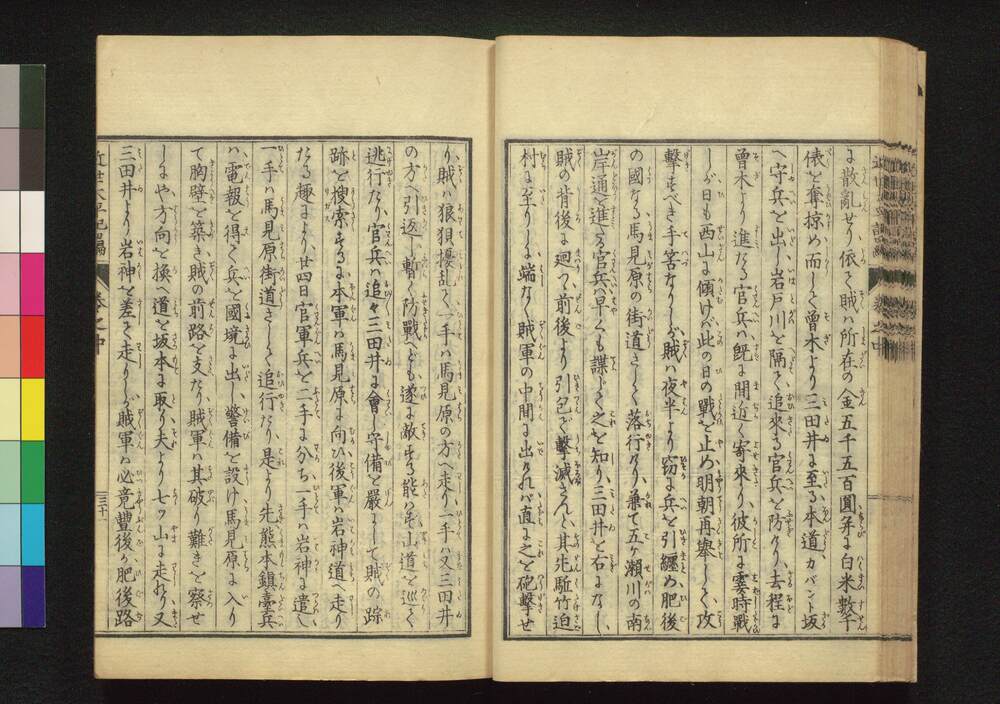 に散亂せり依て賊ハ所在の金五千五百圓并に白米數千
俵を奪掠め而して曾木より三田井に至る本道カバント坂
へ守兵を出し岩戸川を隔て追來る官兵を防けり去程に
曾木より進たる官兵ハ既に間近く寄來り彼所に霎時戰
しが日も西山に傾けバ此の日の戰を止め明朝再擧して攻
撃すべき手筈なりしが賊ハ夜半より窃に兵を引纏め肥後
の國なる馬見原の街道さして落行けり兼て五ヶ瀬川の南
岸通を進む官兵早くも諜して之を知り三田井を右になし
賊の背後に廻つて前後より引包で撃滅さんと其先駈竹迫
村に至りしに端なく賊軍の中間に出けれバ直に之を砲撃せ
り賊ハ狼狽擾乱て一手ハ馬見原の方へ走り一手ハ又三田井
の方へ引返し暫く防戰へども遂に敵する能はず山道を巡て
逃行たり官兵ハ追々三田井に會し守備を嚴にして賊の踪
跡を搜索するに本軍ハ馬見原に向ひ後軍ハ岩神道へ走り
たる趣により廿四日官軍兵を二手に分ち一手ハ岩神に遣し
一手ハ馬見原街道さして追行たり是より先熊本鎭臺兵
ハ電報を得て兵を國境に出し警備を設け馬見原に入り
て胸壁を築き賊の前路を支たり賊軍ハ其破り難きを察せ
しにや方向を換へ道を坂本に取り夫より七ツ山に走れり又
三田井より岩神を差て走りし賊軍ハ必竟豐後か肥後路
近世太平記四編
卷之中
三十一